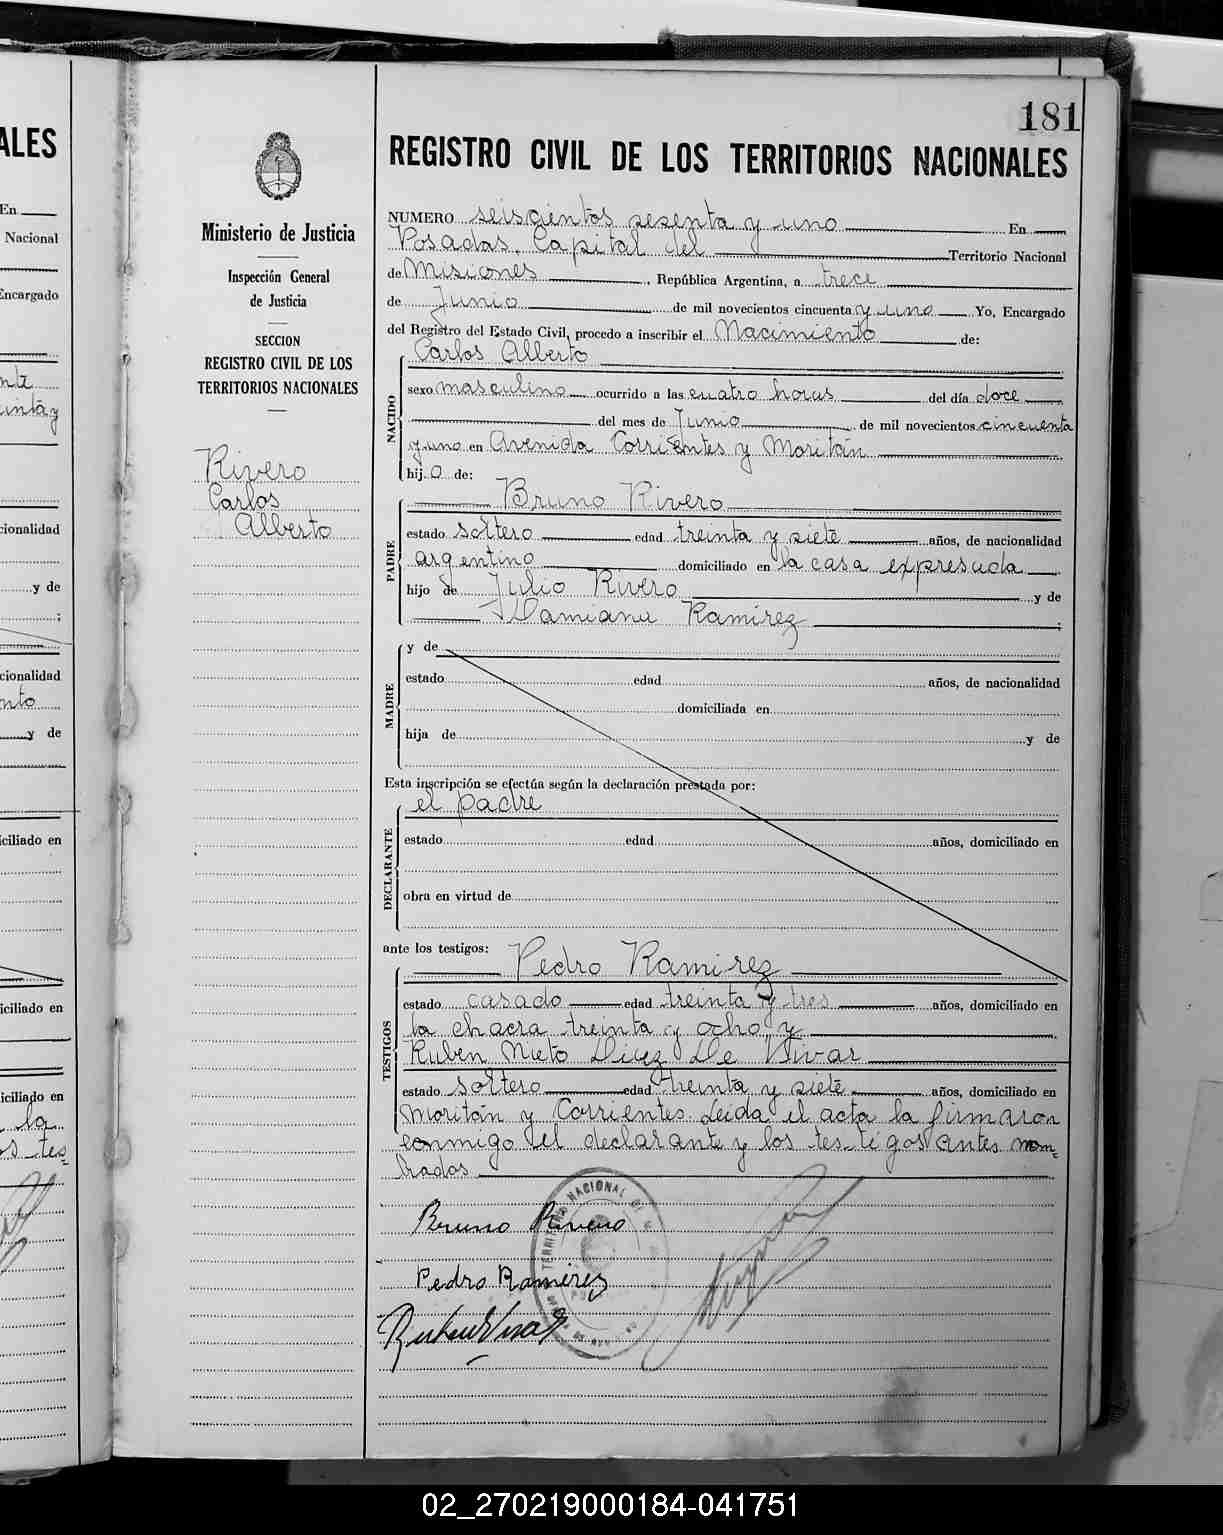 181
REGISTRO CIVIL DE LOS TERRITORIOS NACIONALES
Ministerio de Justicia
Inspección General
de Justicia
SECCION
REGISTRO CIVIL DE LOS
TERRITORIOS NACIONALES
Rivero
Carlos
Alberto
NUMERO seiscientos sesenta y uno En
Posadas, Capital del Territorio Nacional
de Misiones, República Argentina, a trece
de Junio de mil novecientos cincuenta y uno Yo, Encargado
del Registro del Estado Civil, procedo a inscribir el Nacimiento de:
NACIDO
Carlos Alberto
sexo masculino ocurrido a las cuatro horas del día doce
del mes de Junio de mil novecientos cincuenta
y uno en Avenida Corrientes y Moritán
hijo de:
PADRE
Bruno Rivero
estado soltero edad treinta y siete años, de nacionalidad
argentino domiciliado en la casa expresada
hijo de Julio Rivero y de
Damiana Ramirez;
MADRE
y de
estado edad años, de nacionalidad
domiciliada en
hija de y de
Esta inscripción se efectúa según la declaración prestada por:
DECLARANTE
el padre
estado edad años, domiciliado en
obra en virtud de
ante los testigos:
TESTIGOS
Pedro Ramirez
estado casado edad treinta y tres años, domiciliado en
la chacra treinta y ocho y
Ruben Nieto Diez De Vivar
estado soltero edad treinta y siete años, domiciliado en
Moritán y Corrientes. Leida el acta la firmaron
conmigo el declarante y los testigos antes nom=
brados
Bruno Rivero
Pedro Ramirez
TERRITORIO NACIONAL DE
ALES
En
Nacional
Encargado
cionalidad
y de
;
cionalidad
y de
ciliado en
iciliado en
iciliado en
la
02_270219000184-041751